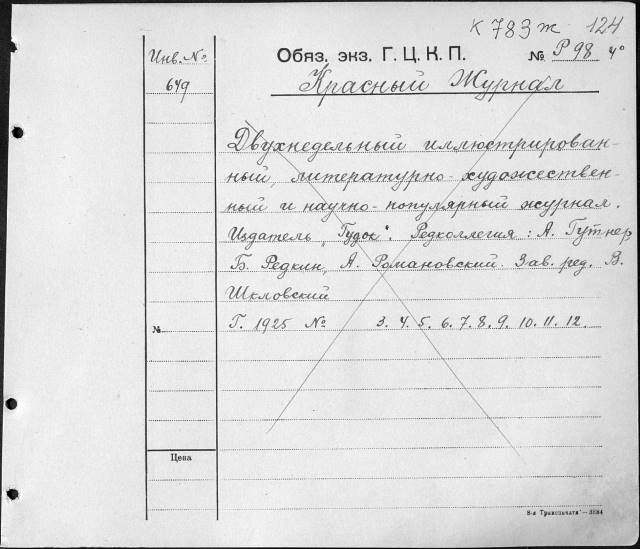 К 783ж 124
Инв. №
649
Обяз. экз. Г. Ц. К. П. № Р 98 4°
Красный Журнал
Двухнедельный иллюстрирован-
ный, литературно-художествен-
ный и научно-популярный журнал.
Издатель "Гудок". Редколлегия: А. Гутнер
Б. Редкин, А. Романовский. Зав. ред. В.
Шкловский
№ Г. 1925 № 3. 4. 5. 6. 7. 8. 9. 10. 11. 12.
Цена
8-я Транспечати—3684